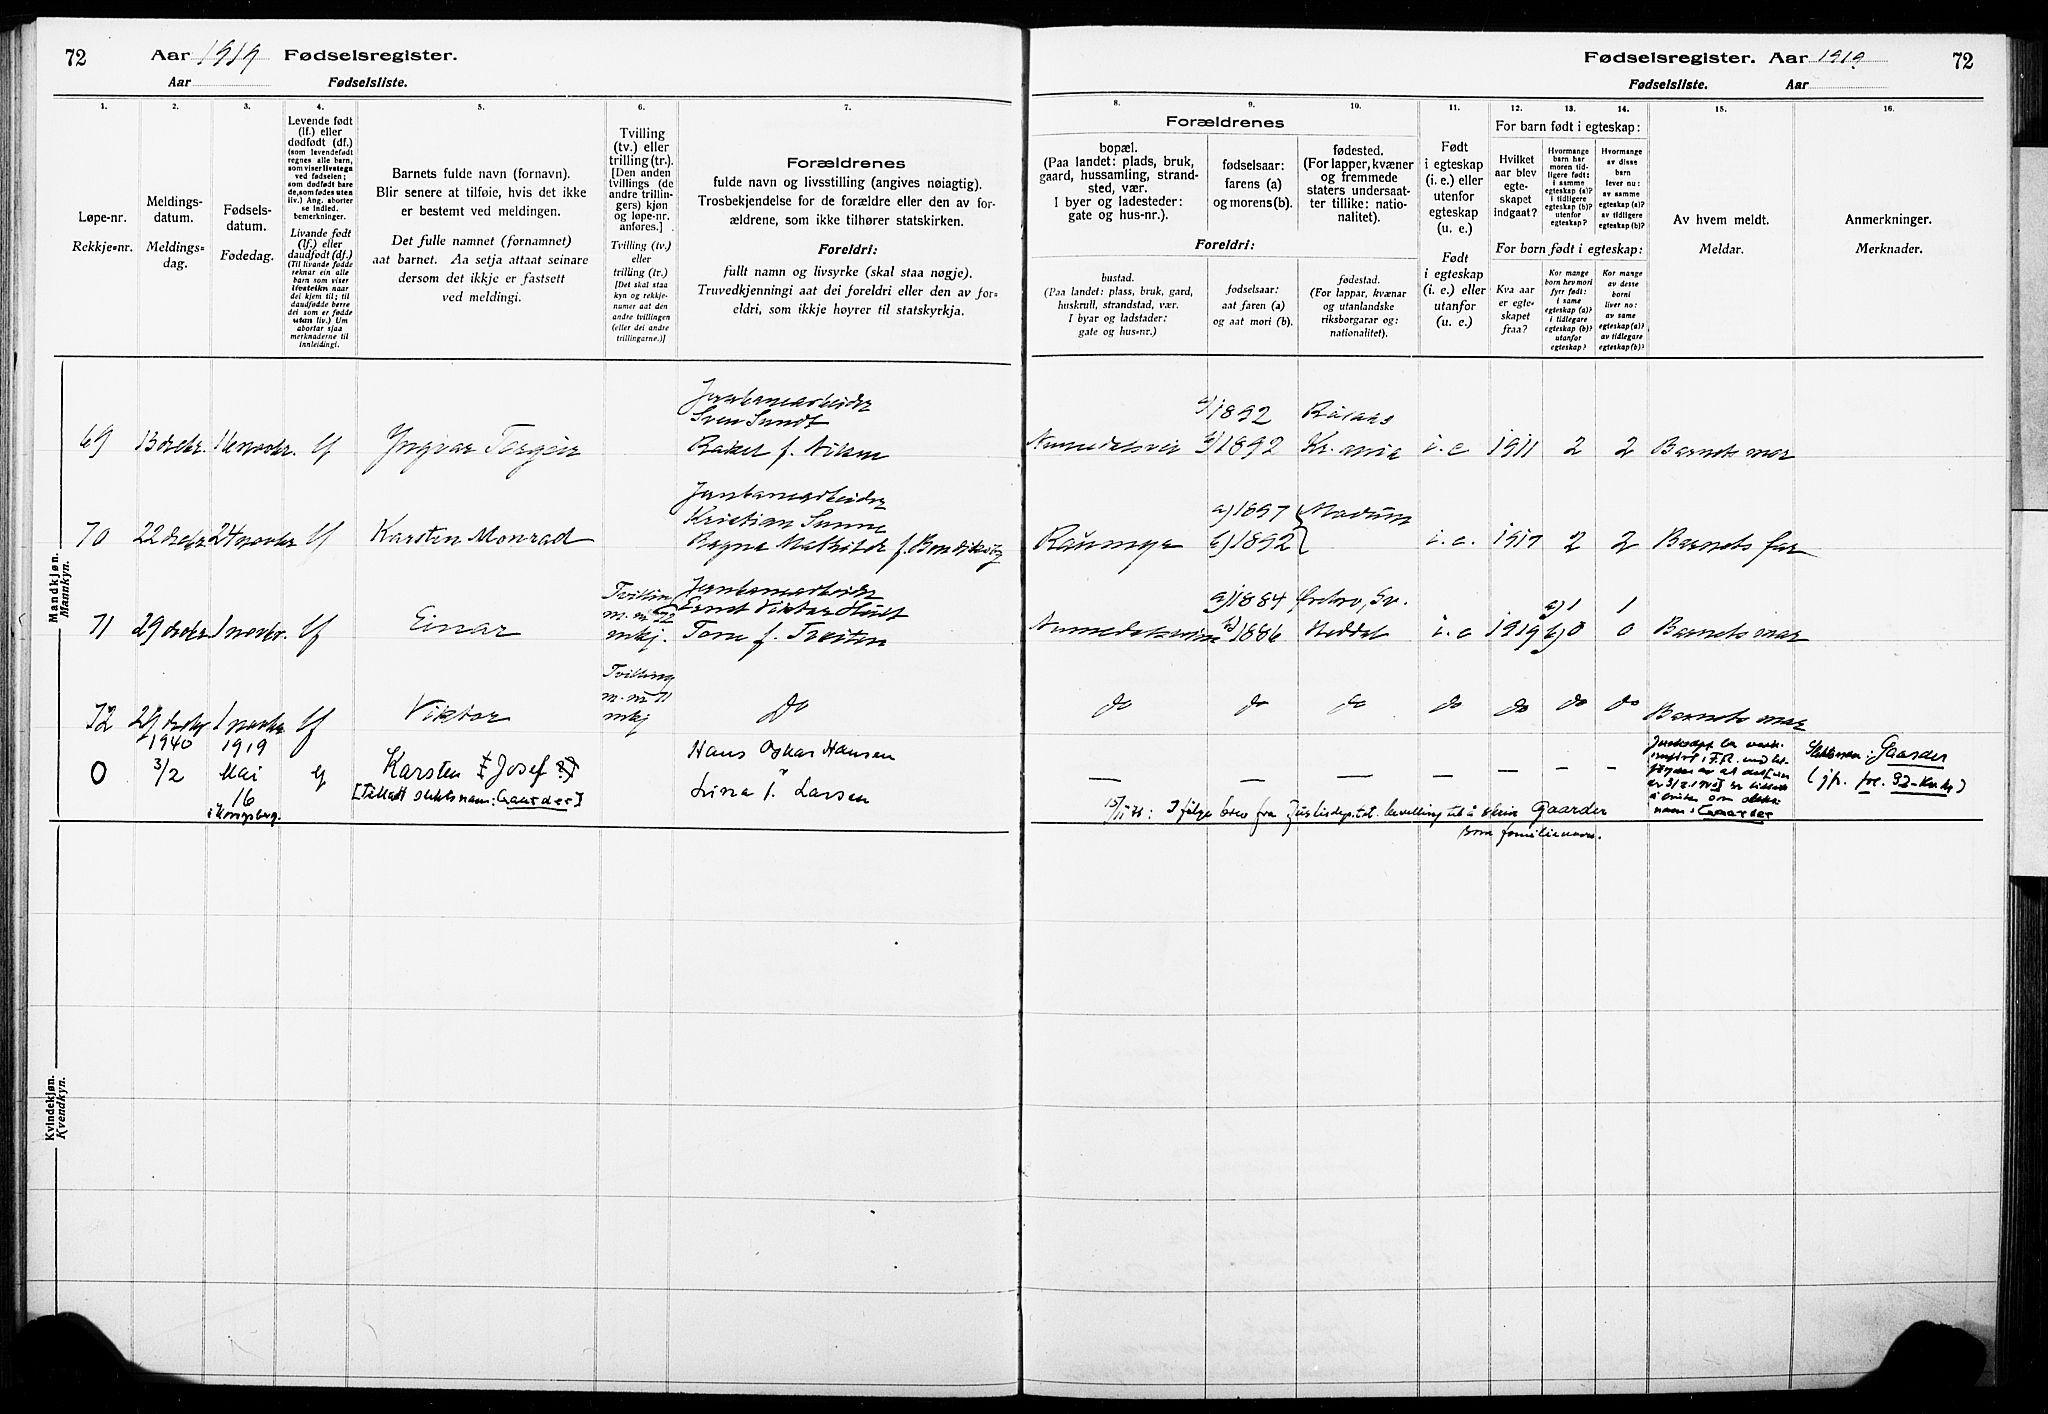 72
Aar 1919 Fødselsregister.
Aar
Fødselsliste.
1.
2.
3.
4.
5.
6.
7.
Løpe-nr.
Rekkje-nr.
Meldings-
datum.
Meldings-
dag.
Fødsels-
datum.
Fødedag.
Levende født
(lf.) eller
dødfødt (df.)
(som levendefødt
regnes alle barn,
som viser livstegn
ved fødselen;
som dødfødt bare
de, som fødes uten
liv.) Ang. aborter
se indled.
bemerkninger.
Livande født
(lf.) eller
daudfødt (df.)
(Til livande fødde
reknar ein alle
barn som viser
livsteikn naar
dei kjem til; til
daudfødde berre
dei som er fødde
utan liv.) Um
abortar sjaa
merknaderne til
innleidingi.
Barnets fulde navn (fornavn).
Blir senere at tilføie, hvis det ikke
er bestemt ved meldingen.
Det fulle namnet (fornamnet)
aat barnet. Aa setja attaat seinare
dersom det ikkje er fastsett
ved meldingi.
Tvilling
(tv.) eller
trilling (tr.).
[Den anden
tvillings (de
andre trillin-
gers) kjøn
og løpe-nr.
anføres.]
Tvilling (tv.)
eller
trilling (tr.)
[Det skal staa
kyn og rekkje-
numer aat den
andre tvillingen
(eller dei andre
trillingarne.)]
Forældrenes
fulde navn og livsstilling (angives nøiagtig).
Trosbekjendelse for de forældre eller den av for-
ældrene, som ikke tilhører statskirken.
Foreldri:
fullt namn og livsyrke (skal staa nøgje).
Truvedkjenningi aat dei foreldri eller den av for-
eldri, som ikkje høyrer til statskyrkja.
Mandkjøn.
Mannkyn.
69
13 decbr.
lf
Yngvar Torgeir
Jernbanearbeider
Sven Sundt
Rakel f.
70
22 decbr
24 novbr
lf
Karsten Monrad
Jernbanearbeider
Kristian
Ragna Mathilde f.
71
29 decbr
1 novbr.
lf
Einar
Tvilling
m. nr 72
mkj.
Jernbanearbeider
Ernst Viktor
f. Tveiten
72
29 decbr
1 novbr
lf
Viktor
Tvilling
m. nr 71
mkj
Do
0
1940
3/2
1919
Mai
16
i Kongsberg.
lf
Karsten Josef
[Tillatt slektsnam: Gaarder]
Hans Oskar Hansen
Lina f. Larsen
Kvindekjøn.
Kvendkyn.
Fødselsregister. Aar 1919
72
Fødselsliste.
Aar
8.
9.
10.
11.
12.
13.
14.
15.
16.
Forældrenes
bopæl.
(Paa landet: plads, bruk,
gaard, hussamling, strand-
sted, vær.
I byer og ladesteder:
gate og hus-nr.).
fødselsaar:
farens (a)
og morens (b).
fødested.
(For lapper, kvæner
og fremmede
staters undersaat-
ter tillike: natio-
nalitet).
Foreldri:
bustad.
(Paa landet: plass, bruk, gard,
huskrull, strandstad, vær.
I byar og ladstader:
gate og hus-nr.)
fødselsaar:
aat faren (a)
og aat mori (b).
fødestad.
(For lappar, kvænar
og utanlandske
riksborgarar og:
nationalitet).
Født
i egteskap
(i. e.) eller
utenfor
egteskap
(u. e.)
Født
i egteskap
(i. e.) eller
utanfor
(u. e.)
For barn født i egteskap:
Hvilket
aar blev
egte-
skapet
indgaat?
Hvormange
barn har
moren tid-
ligere født:
i samme
egteskap (a)?
i tidligere
egteskap (b)?
utenfor
egteskap?
Hvormange
av disse
barn
lever nu:
av samme
egteskap (a)?
av tidligere
egteskap (b)?
For born født i egteskap:
Kva aar
er egte-
skapet
fraa?
Kor mange
born hev mori
fyrr født:
i same
egteskap (a)?
i tidlegare
egteskap (b)?
utanfor
egteskap?
Kor mange
av desse
borni
liver no:
av same
egteskap (a)?
av tidlegare
egteskap (b)?
Av hvem meldt.
Meldar.
Anmerkninger.
Merknader.
a) 1892
b) 1892
Kr.ania
i. e
1911
2
2
Barnets mor
a) 1897
b) 1892
Modum
i. e.
1917
2
2
Barnets far
a) 1884
b) 1886
Örebro, Sv.
Heddal
i. e
1919
a) 1
b) 0
1
0
Barnets mor
do
do
do
do
do
do
do
Barnets mor
Slektsnavn: Gaarder
15/11 46: Ifølge brev fra Justisdep. tit. bevilling til å skrive Gaarder
som familienavn.